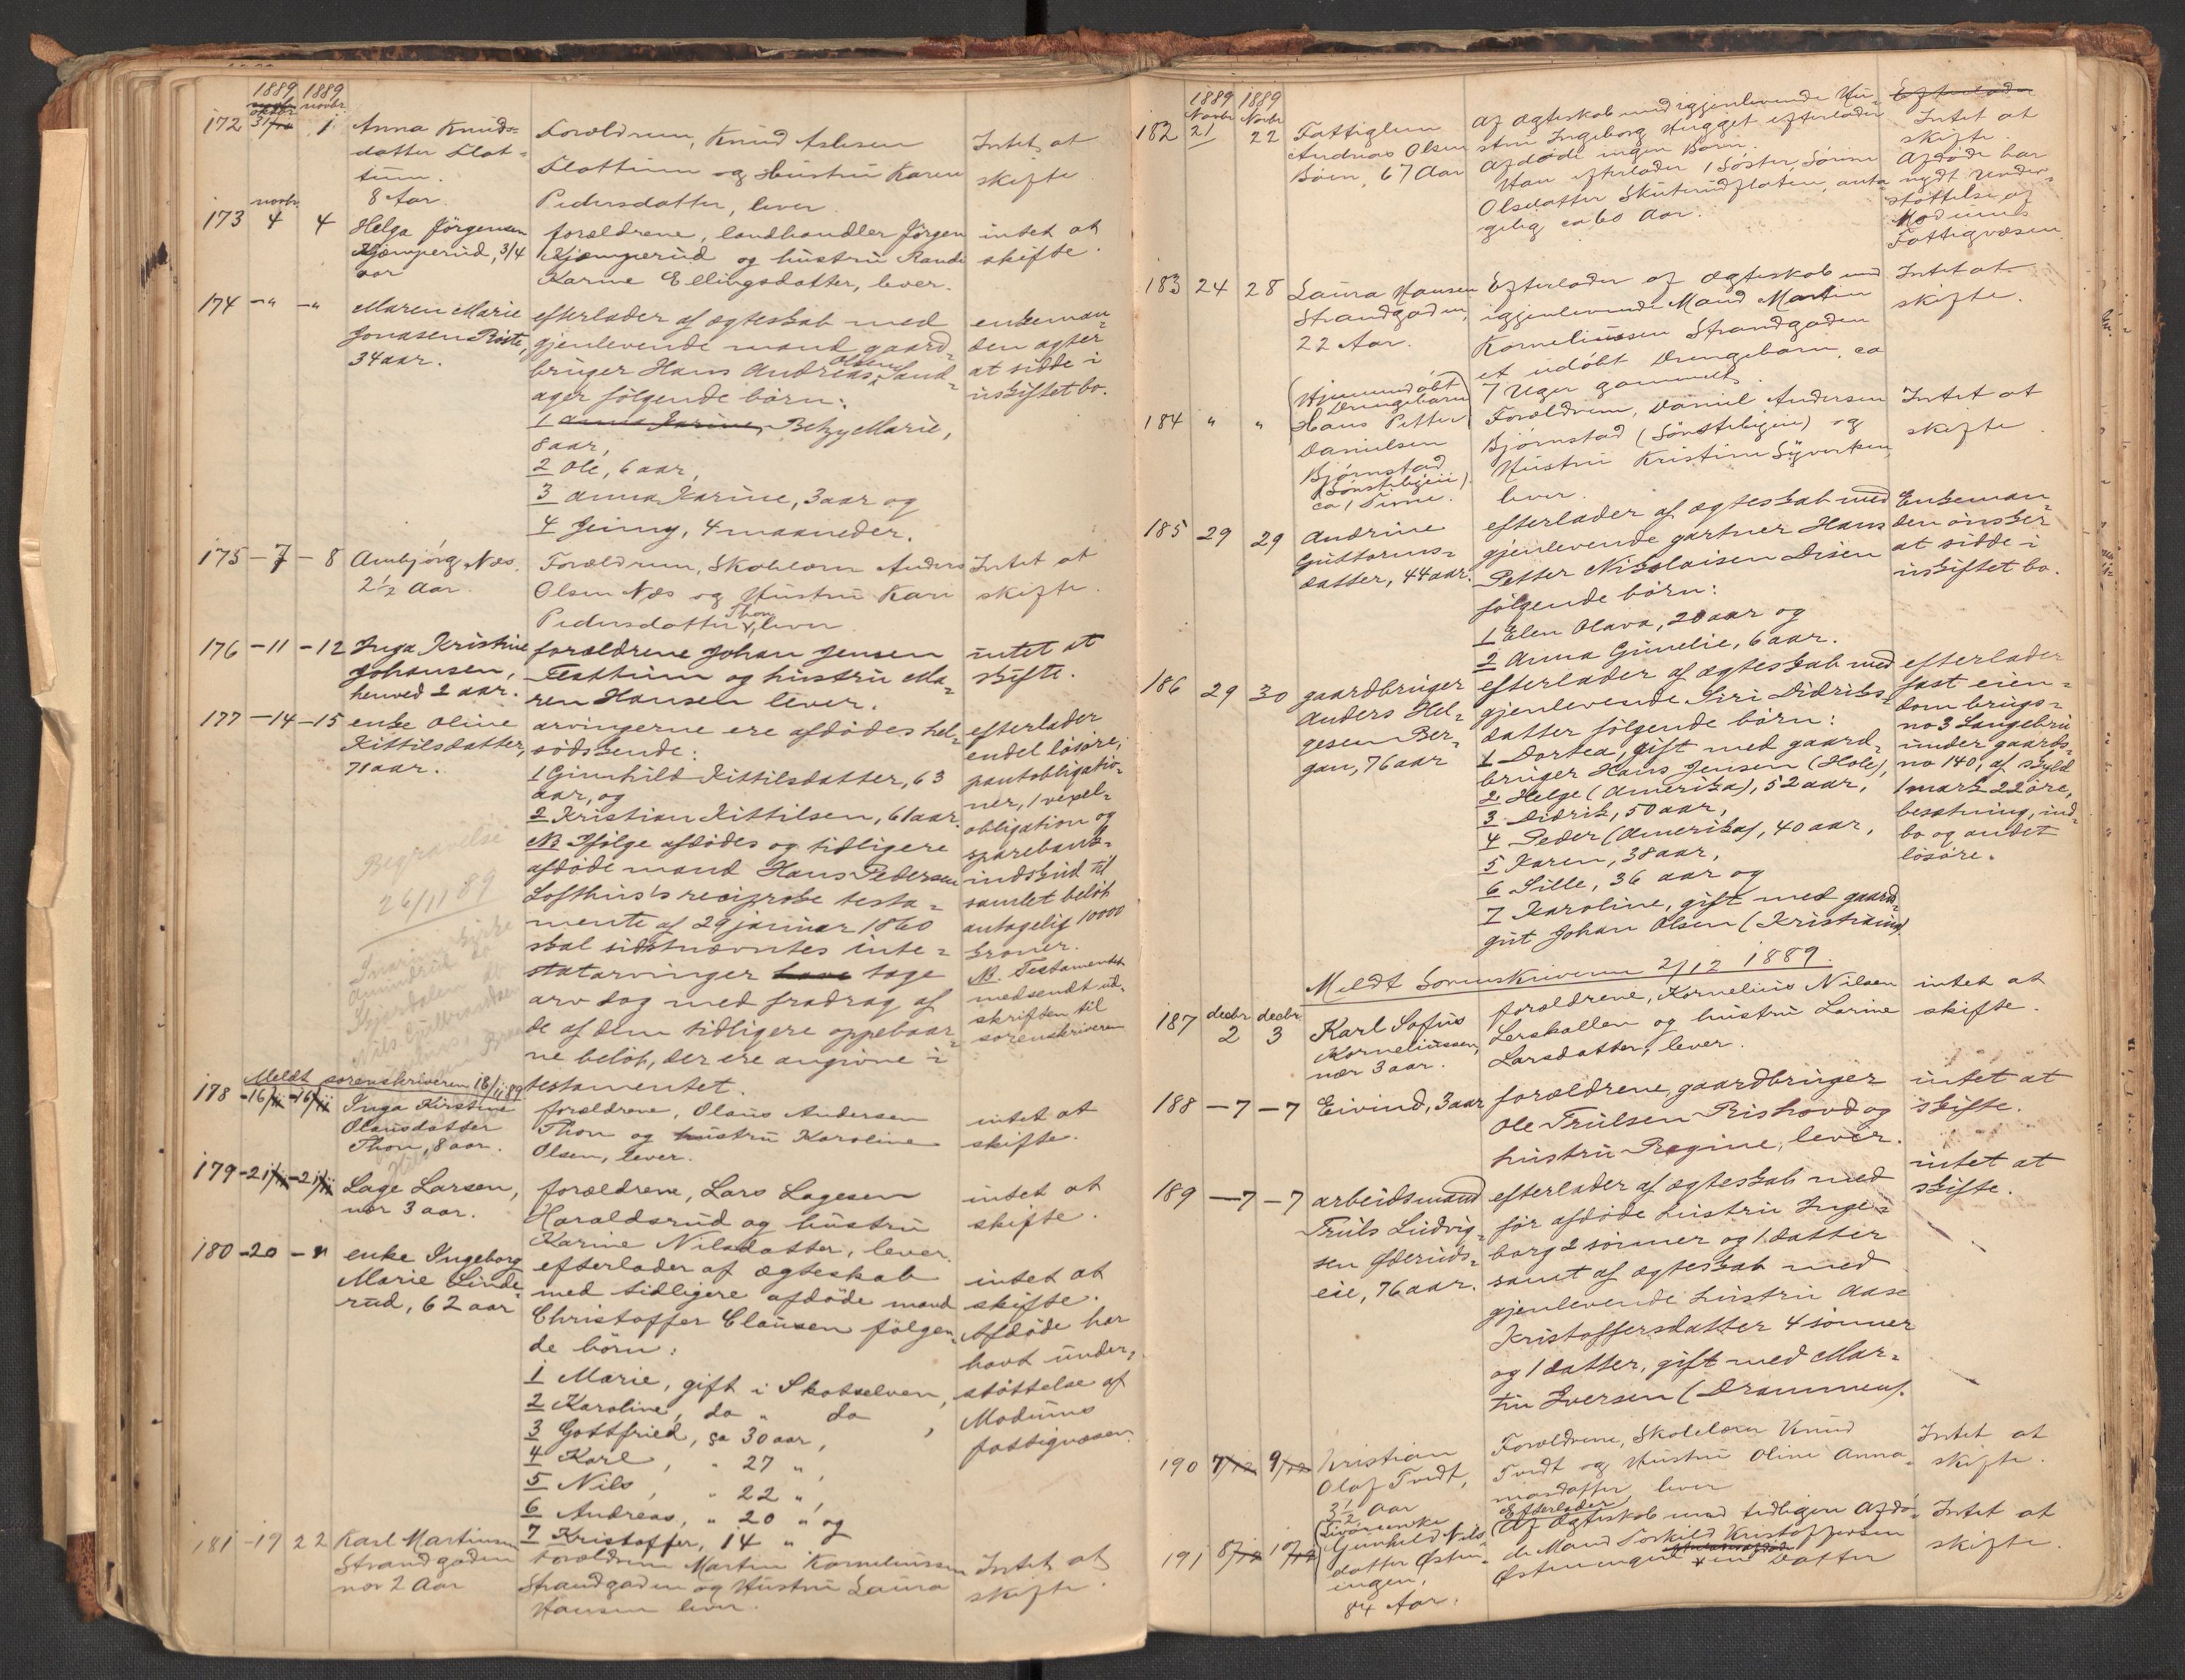 1889 1889
novbr
oktbr novbr
172 31/10 1 Anna Knuds- Forældrene, Knud Aslesen Intet at
datter Slat- Slattum og Hustru Karen skifte.
tum. Pedersdatter, lever.
8 Aar.
novbr.
173 4 4 Helga Jörgensen forældrene, landhandler Jörgen intet at
Kjæmperud, 3/4 Kjæmperud og hustru Randi skifte.
aar Karine Ellingsdatter, lever.
174 -" -" Maren Marie efterlader af ægteskab med enkeman-
Jonasen Röste, gjenlevende mand gaard- den agter
34 aar. bruger Hans Andreas Olsen Sand- at sidde i
ager fölgende börn: uskiftet bo.
1 Anna Karine, Betzy Marie,
8 aar,
2 Ole, 6 aar,
3 Anna Karine, 3 aar og
4 Jenny, 4 maaneder.
175 - 7 - 8 Ambjörg Næs. Forældrene, Skolelærer Anders Intet at
2 1/2 Aar. Olsen Næs og Hustru Kari skifte.
Pedersdatter Thon, lever.
176 - 11 - 12 Inga Kristine forældrene Johan Jensen intet at
Johansen, Festhum og hustru Ma- skifte.
henved 2 aar. ren Hansen lever.
177 - 14 - 15 enke Oline arvingerne ere afdödes hel- efterlader
Kittilsdatter, södskende: endel lösöre,
71 aar. 1 Gunhild Kittilsdatter, 63 pantobligatio-
aar, og ner, 1 vexel-
2 Kristian Kittilsen, 61 aar. obligation og
NB Ifölge afdödes og tidligere sparebank-
afdöde mand Hans Pedersen indskud til
Lofthus's reciproke testa- samlet belöb
mente af 29 januar 1860 antagelig 10000
skal sidstnævntes inte- kroner.
statarvinger have tage NB. Testamentet
arv dog med fradrag af medsendt ud-
de af dem tidligere oppebaar- skriften til
ne belöb, der ere angivne i sorenskriveren
testamentet.
Begravelse
26/11 89
Meldt sorenskriveren 18/11 89
178 - 16/11 - 16/11 Inga Kirstine forældrene, Olaus Andersen intet at
Olausdatter Thon og hustru Karoline skifte.
Thon, 8 aar. Olsen, lever.
179 - 21/11 - 21/11 Lage Larsen, forældrene, Lars Lagesen intet at
nær 3 aar. Haraldsrud og hustru skifte.
Karine Nilsdatter, lever.
180 - 20 - " enke Ingeborg efterlader af ægteskab intet at
Marie Linde- med tidligere afdöde mand skifte.
rud, 62 aar Christoffer Clausen fölgen- Afdöde har
de börn: havt under-
1 Marie, gift i Skotselven, stöttelse af
2 Karoline, do " do , Modums
3 Gottfried, ca 30 aar, fattigvæsen.
4 Karl , " 27 " ,
5 Nils , " 22 " ,
6 Andreas, " 20 " og
7 Kristoffer, 14 "
181 - 19 22 Karl Martinsen Forældrene Martin Korneliussen Intet at
Strandgaden Strandgaden og Hustru Laura skifte.
nær 2 Aar Hansen lever.
1889 1889
Novbr Novbr
182 21 22 Fattiglem Af Ægteskab med igjenlevende Hu- Efterlader
Andreas Olsen stru Ingeborg Hugget efterlader Intet at
Böen, 67 Aar Afdöde ingen Börn. skifte.
Han efterlader 1 Söster, Sörine Afdöde har
Olsdatter Skuterudflaten, anta- nydt Under-
gelig ca 60 Aar. stöttelse af
Modums
Fattigvæsen.
183 24 28 Laura Hansen Efterlader af Ægteskab med Intet at
Strandgaden, igjenlevende Mand Martin skifte.
22 Aar. Korneliussen Strandgaden
et udöbt Drengebarn, ca
7 Uger gammelt.
(Hjemmedöbt
Drengebarn)
184 " " Hans Petter Forældrene, Daniel Andersen Intet at
Danielsen Bjørnstad (Sönsteby eie) og skifte.
Bjørnstad Hustru Kristine Syversen,
(Sönstebyeie) lever.
ca 1 Time.
185 29 29 Andrine efterlader af ægteskab med Enkeman-
Guttorms- gjenlevende gartner Hans den önsker
datter, 44 aar. Petter Nikolaisen Disen at sidde i
fölgende börn: uskiftet bo.
1 Elen Olava, 20 aar og
2 Anna Gunelie, 6 aar.
186 29 30 gaardbruger efterlader af ægteskab med efterlader
Anders Hel- gjenlevende Siri Didriks- fast eien-
gesen Ber- datter fölgende börn: dom brugs-
gan, 76 aar 1 Dortea, gift med gaard- no 3 Langebru
bruger Hans Jensen (Hole), under gaards-
2 Helge (Amerika), 52 aar, no 140, af skyld
3 Didrik, 50 aar, 1 mark 22 öre,
4 Peder (Amerika), 40 aar, besætning, ind-
5 Karen, 38 aar, bo og andet
6 Sille, 36 aar og lösöre.
7 Karoline, gift med gaard-
gut Johan Olsen (Kristiania)
Meldt Sorenskriveren 2/12 1889.
187 decbr 2 decbr 3 Karl Sofus forældrene, Kornelius Nilsen intet at
Korneliussen, Lerskallen og hustru Larine skifte.
nær 3 aar. Larsdatter, lever.
188 - 7 - 7 Eivind, 3 aar forældrene, gaardbruger intet at
Ole Trulsen Rishovd og skifte.
hustru Regine, lever.
189 - 7 - 7 arbeidsmand efterlader af ægteskab med intet at
Truls Ludvig- för afdöde hustru Inge- skifte.
sen Öderuds- borg 2 sönner og 1 datter
eie, 76 aar. samt af ægteskab med
gjenlevende hustru Aase
Kristoffersdatter 4 sönner
og 1 datter, gift med Mar-
tin Iversen (Drammen).
190 7/12 9/12 Kristian Forældrene, Skolelærer Knud Intet at
Olaf Tvedt, Tvedt og Hustru Oline Anna- skifte.
3 1/2 Aar marsdatter, lever
191 8/12 10/12 Gunhild Nils- Efterlader
datter Östen- Af Ægteskab med tidligere afdö- Intet at
ingen, de Mand Torkild Kristoffersen skifte.
84 Aar. Østenengen en Datter